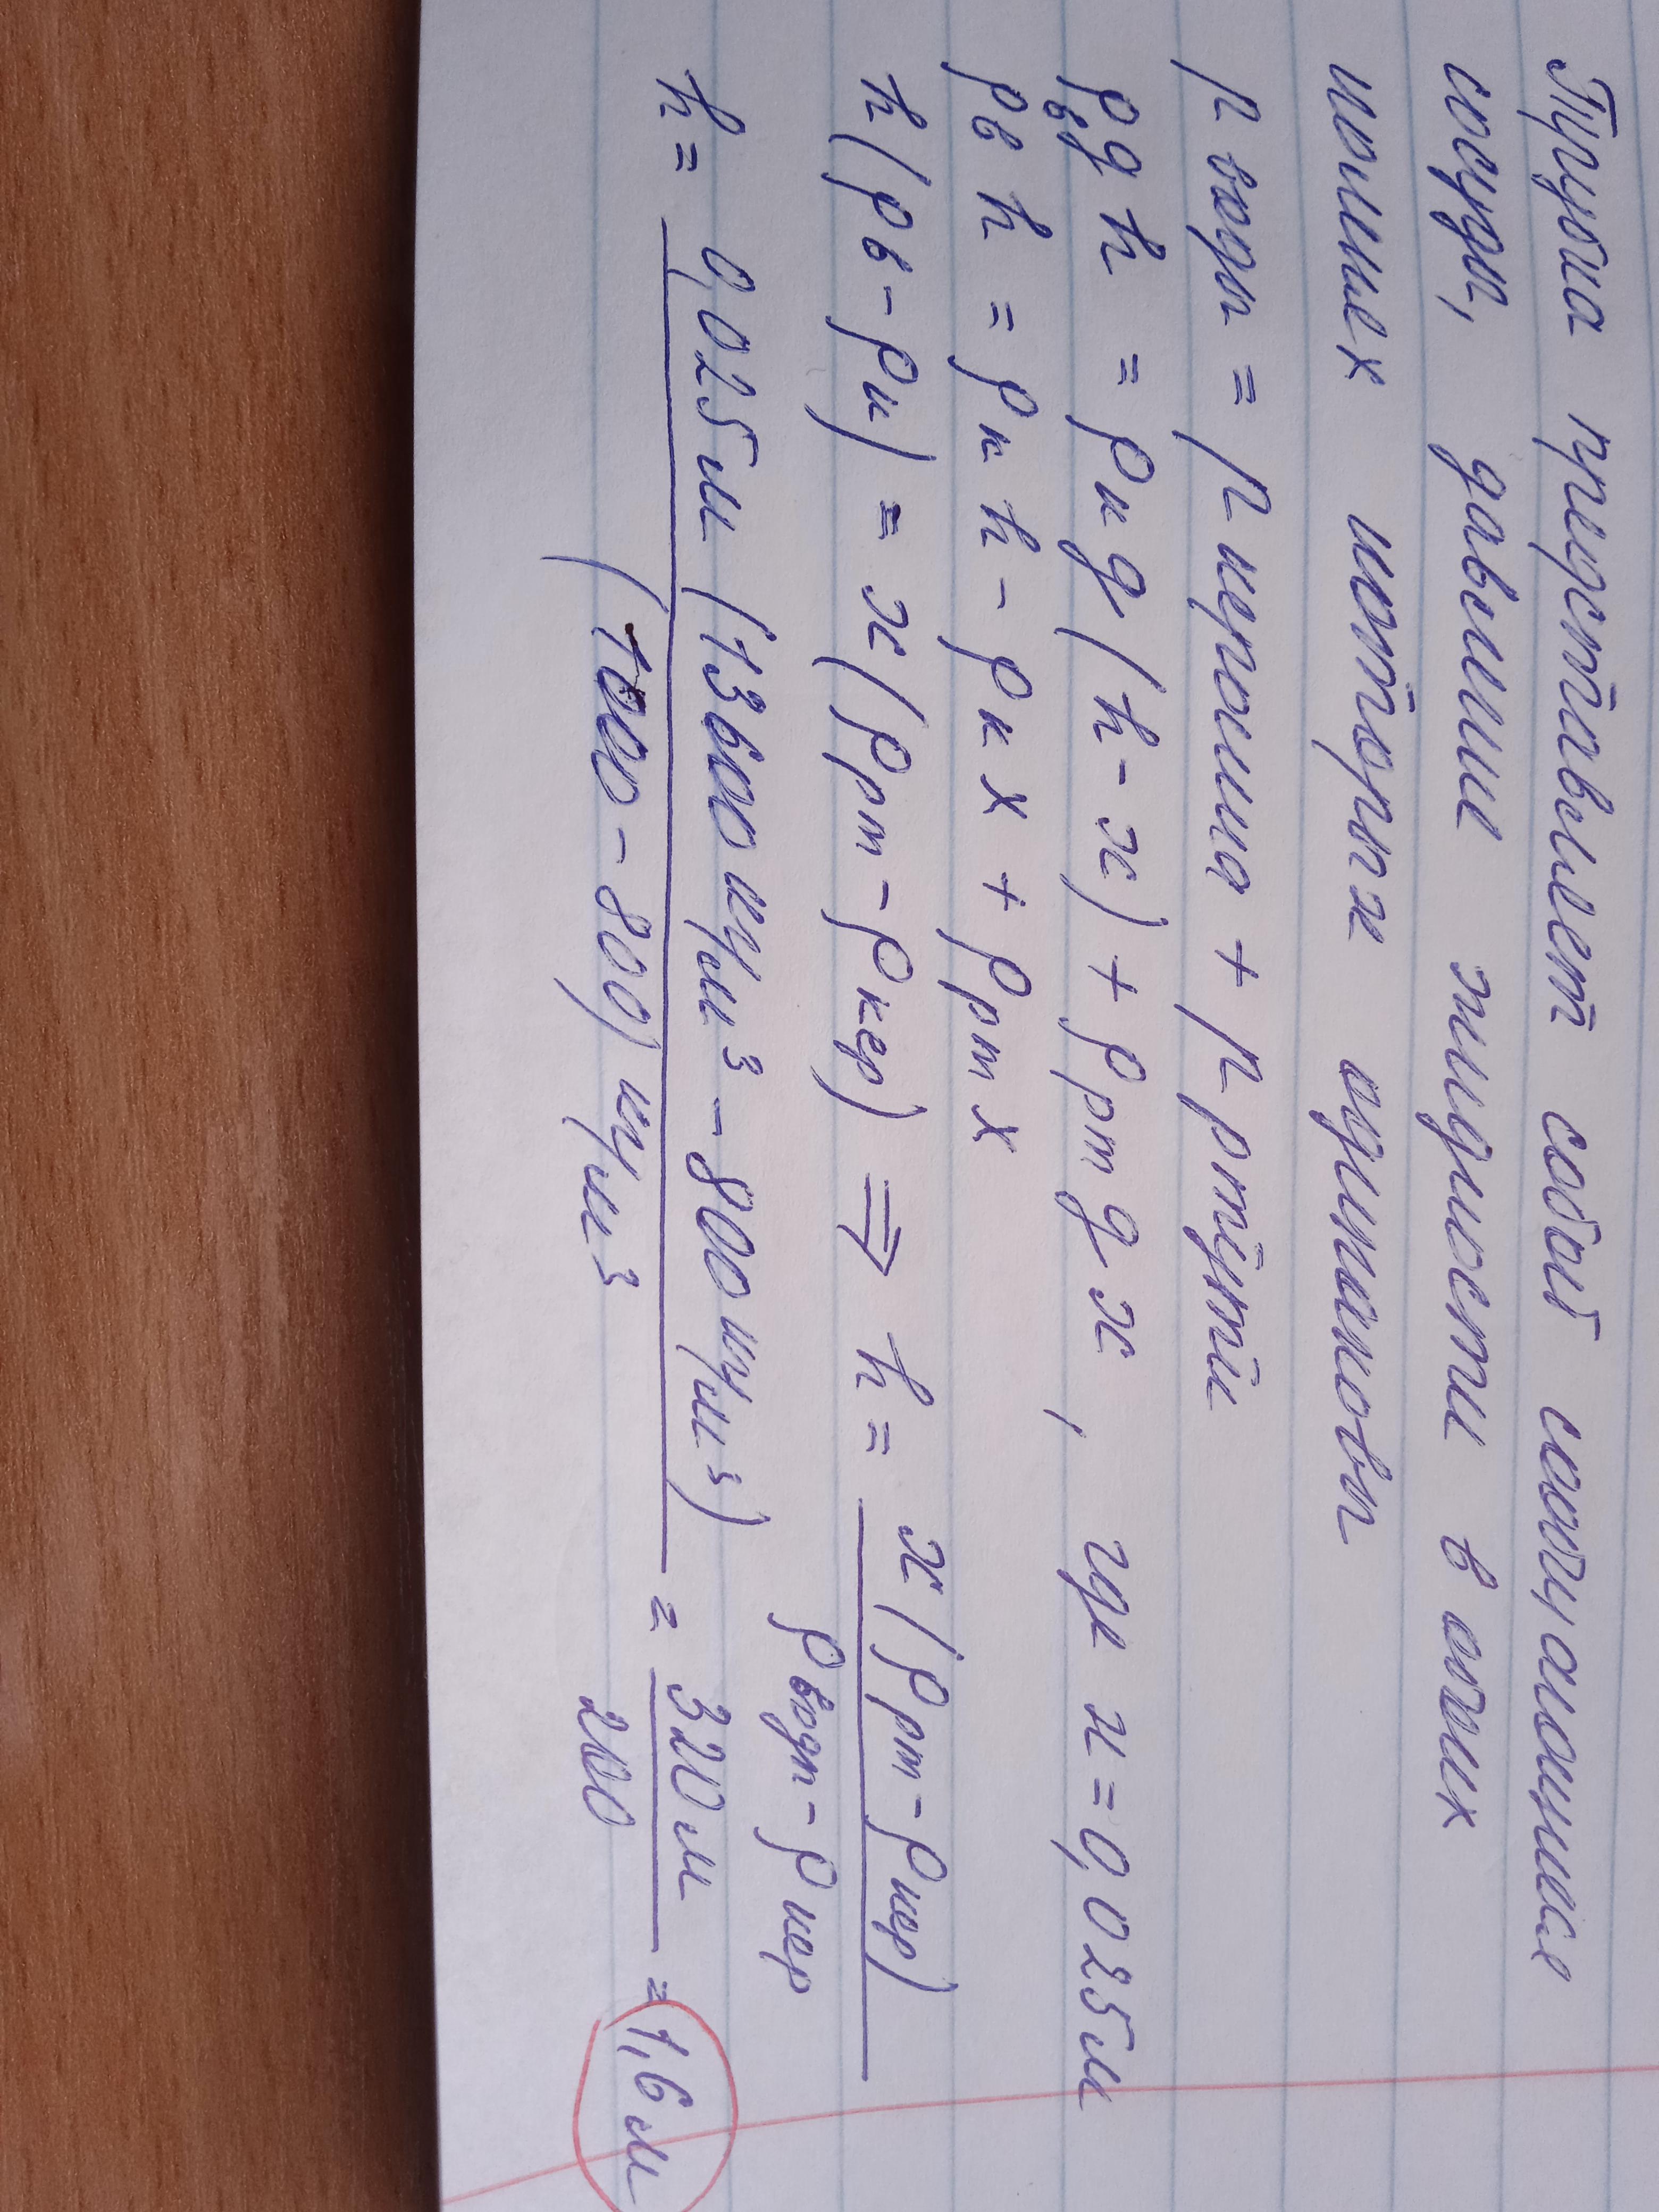 Трубка представляет собой сообщающиеся
сосуды, давление жидкости в обоих
коленах которых одинаковы
p воды = p керосина + p ртути
ρвgh = ρкg(h-x) + ρртgx, где x = 0,025м
ρвh = ρкh - ρкx + ρртx
h(ρв-ρк) = x(ρрт-ρкер) ⟹ h = x(ρрт-ρкер) / ρводы-ρкер
h = 0,025м (13600кг/м³ - 800кг/м³) / (1000-800)кг/м³ = 320м / 200 = 1,6м